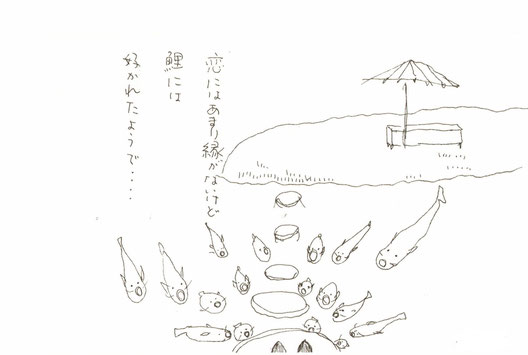 恋にはあまり縁がないけど
鯉には
好かれたようで・・・・